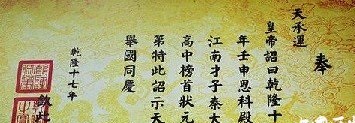 奉
天承運
皇帝詔曰乾隆十
年壬申恩科殿
江南才子秦大
高中榜首狀元
第特此詔示天
舉國同慶
乾隆十七年
欽此